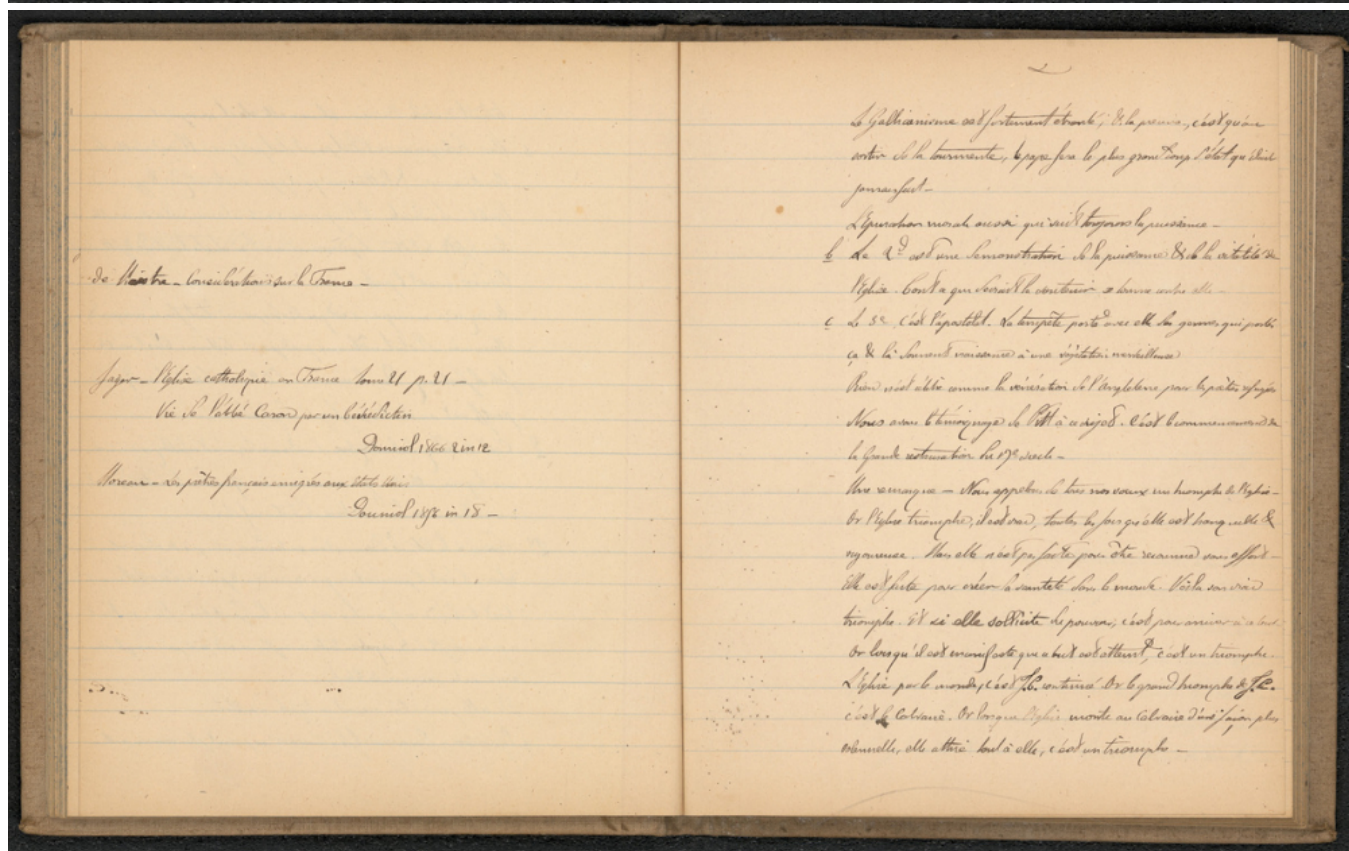 de Maistre - Considérations sur la France -
Jager - l'Eglise catholique en France tome 21 p. 21 -
Vie de l'abbé Caron par un bénédictin
Douniol 1866 2 in 12
Moreau - Les prêtres français émigrés aux Etats Unis
Douniol 1878 in 18 -
2
Le Gallicanisme est fortement ébranlé ; & la preuve, c'est qu'au
sortir de la tourmente, le pape fera le plus grand coup d'état qu'il ait
jamais fait -
L'Epuration morale aussi qui suit toujours la puissance -
b Le 2d est une démonstration de la puissance & de la vitalité de
l'Eglise. Tout ce qui devrait la soutenir se trouve contre elle -
c Le 3e, c'est l'apostolat. La tempête porte avec elle les germes qui portés
çà & là donnent naissance à une végétation merveilleuse
Rien n'est comme la vénération de l'Angleterre pour les prêtres réfugiés
Nous avons le témoignage de Pitt à ce sujet. C'est le commencement de
la Grande restauration du 19e siècle -
Une remarque - Nous appelons de tous nos vœux un triomphe de l'Eglise -
Or l'Eglise triomphe, il est vrai, toutes les fois qu'elle est tranquille &
vigoureuse. Mais elle n'est pas faite pour être sans effort -
Elle est faite pour créer la sainteté dans le monde. Voilà son vrai
triomphe. Et si elle sollicite le pouvoir, c'est pour arriver à ce but.
Or lorsqu'il est manifeste que ce but est atteint, c'est un triomphe.
L'Eglise par le monde, c'est J.C. continué. Or le grand triomphe de J.C.
c'est le Calvaire. Or lorsque l'Eglise monte au Calvaire d'une façon plus
solennelle, elle attire tout à elle, c'est un triomphe -